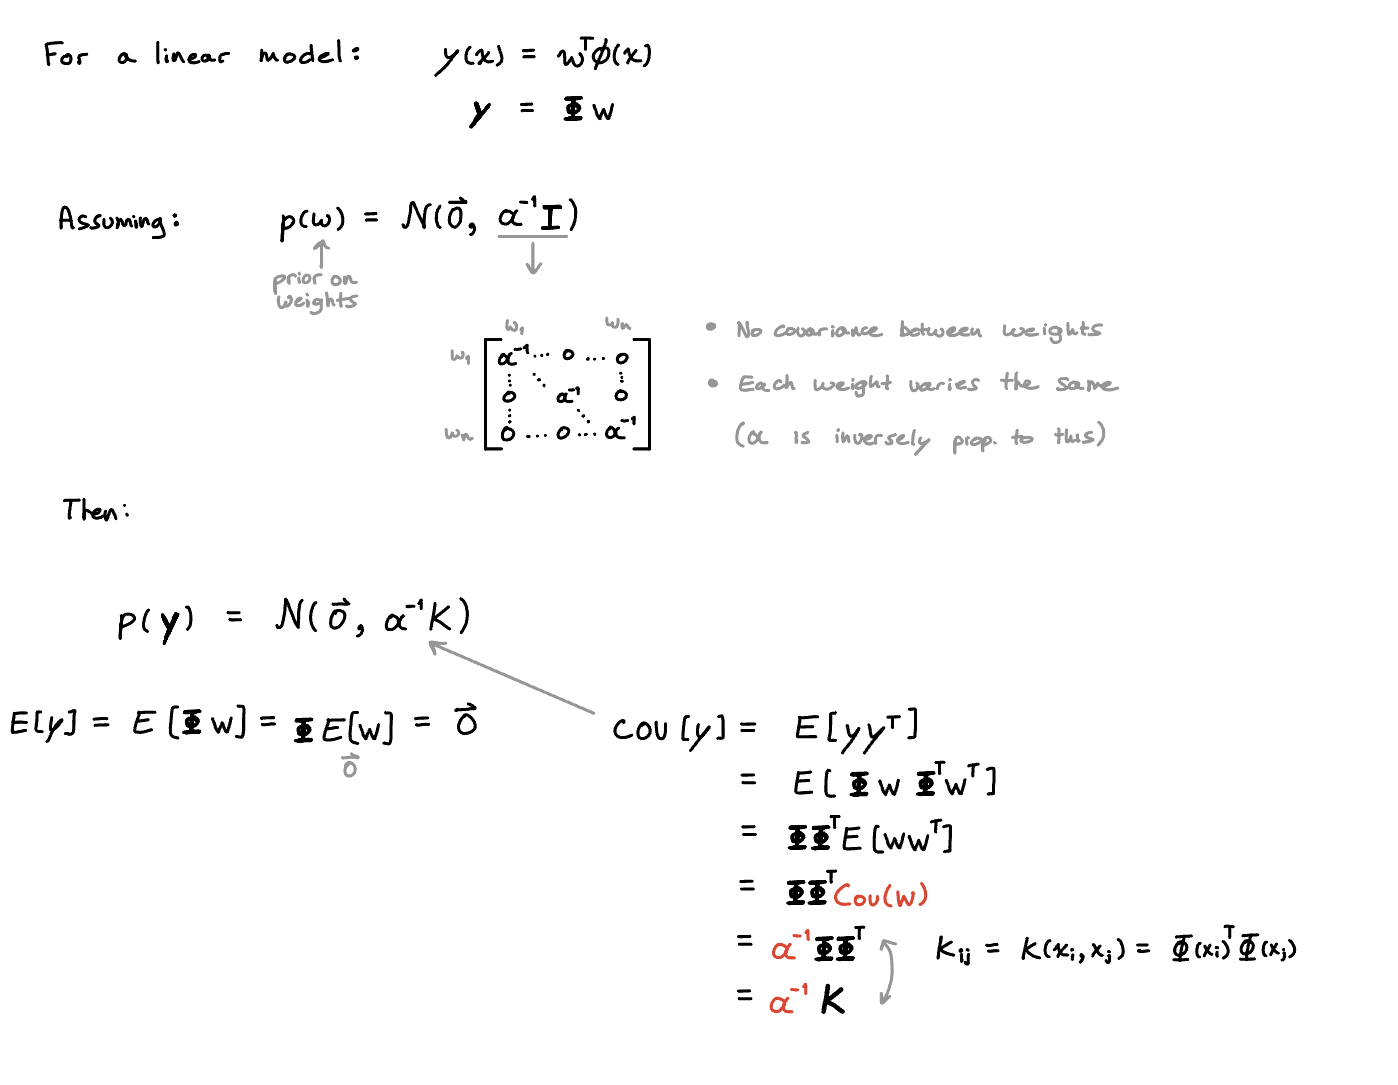 For a linear model: y(x) = wᵀϕ(x)
y = Φ w
Assuming: p(w) = N(0⃗, α⁻¹I)
prior on
weights
w₁ wₙ
w₁ α⁻¹ ... 0 ... 0
0 α⁻¹ 0
wₙ 0 ... 0 ... α⁻¹
• No covariance between weights
• Each weight varies the same
(α is inversely prop. to this)
Then:
p(y) = N(0⃗, α⁻¹K)
E[y] = E[Φ w] = Φ E[w] = 0⃗
0⃗
Cov [y] = E[yyᵀ]
= E[Φ w Φᵀwᵀ]
= ΦΦᵀE[wwᵀ]
= ΦΦᵀCov(w)
= α⁻¹ΦΦᵀ
= α⁻¹ K
Kᵢⱼ = K(xᵢ, xⱼ) = Φ(xᵢ)ᵀΦ(xⱼ)